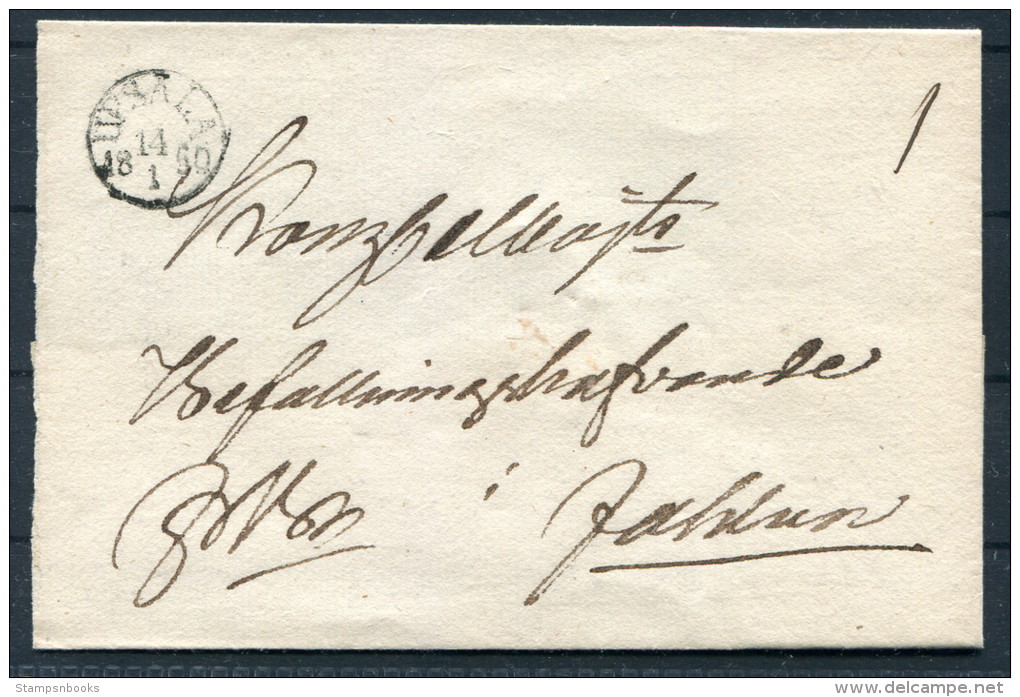 UPSALA
14
18 60
1
1
Konz
Befallningshafvande
i Fahlun
Stampsnbooks
www.delcampe.net